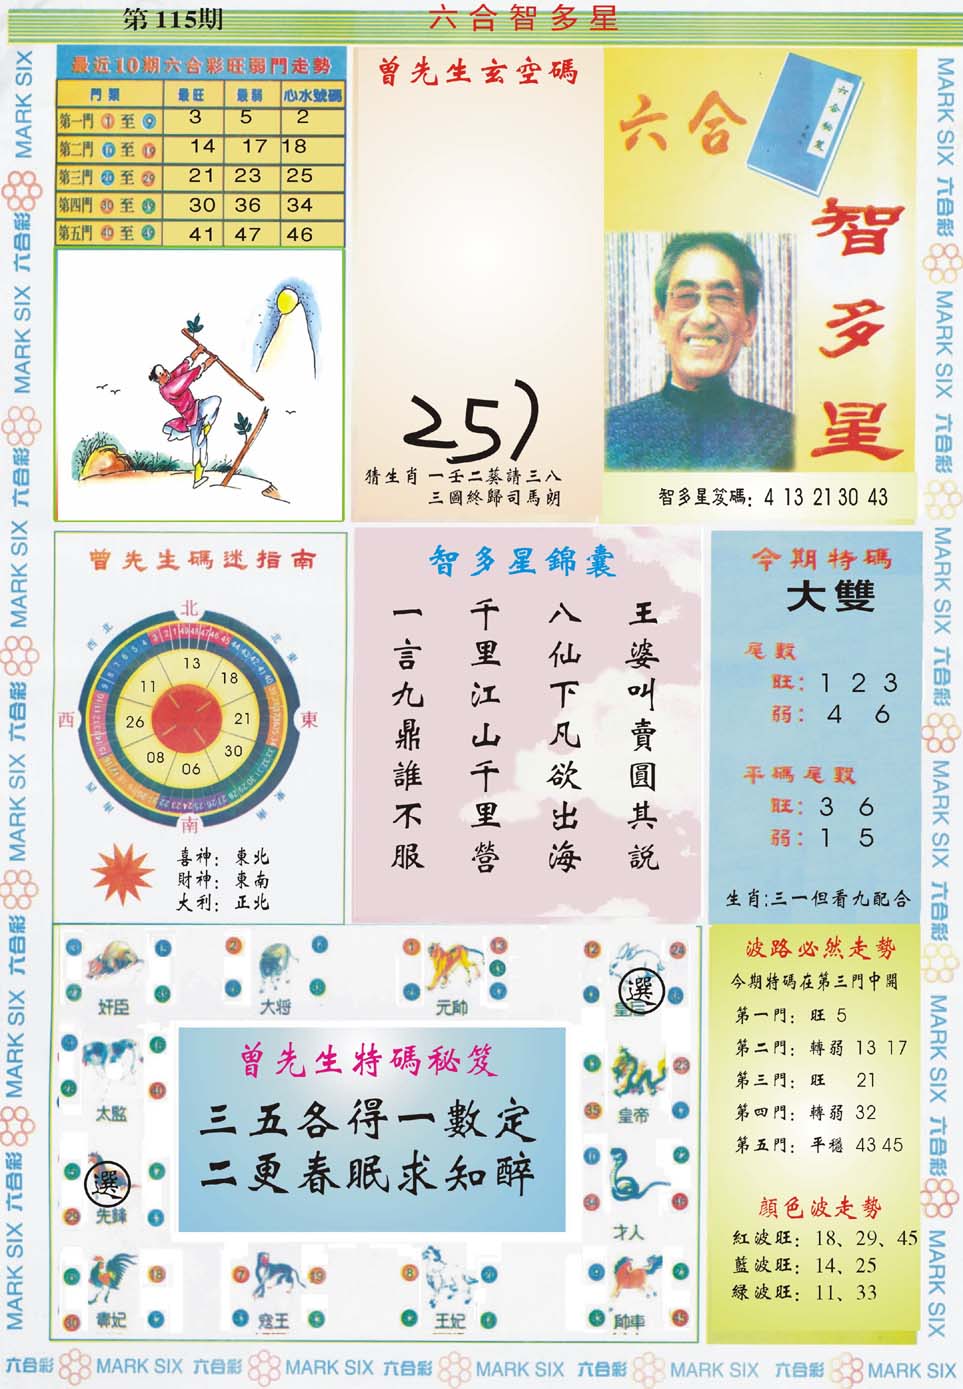 第115期
六合智多星
最近10期六合彩旺弱門走勢
門類 最旺 最弱 心水號碼
第一門 1 至 9 3 5 2
第二門 10 至 19 14 17 18
第三門 20 至 29 21 23 25
第四門 30 至 39 30 36 34
第五門 40 至 49 41 47 46
曾先生玄空碼
257
猜生肖 一壬二葵請三八
三國終歸司馬朗
六合
智多星
智多星笈碼: 4 13 21 30 43
曾先生碼迷指南
北
東北
東
東南
南
西南
西
西北
13
18
21
30
06
08
26
11
喜神: 東北
財神: 東南
大利: 正北
智多星錦囊
王婆叫賣圓其說
八仙下凡欲出海
千里江山千里營
一言九鼎誰不服
今期特碼
大雙
尾數
旺: 1 2 3
弱: 4 6
平碼尾數
旺: 3 6
弱: 1 5
生肖:三一但看九配合
奸臣
大将
元帥
選
太監
皇帝
選
先鋒
才人
曾先生特碼秘笈
三五各得一數定
二更春眠求知醉
寇王
王妃
帥車
波路必然走勢
今期特碼在第三門中開
第一門: 旺 5
第二門: 轉弱 13 17
第三門: 旺 21
第四門: 轉弱 32
第五門: 平穩 43 45
顔色波走勢
紅波旺: 18、29、45
藍波旺: 14、25
緑波旺: 11、33
六合彩 MARK SIX 六合彩 MARK SIX 六合彩 MARK SIX 六合彩 MARK SIX 六合彩 MARK SIX